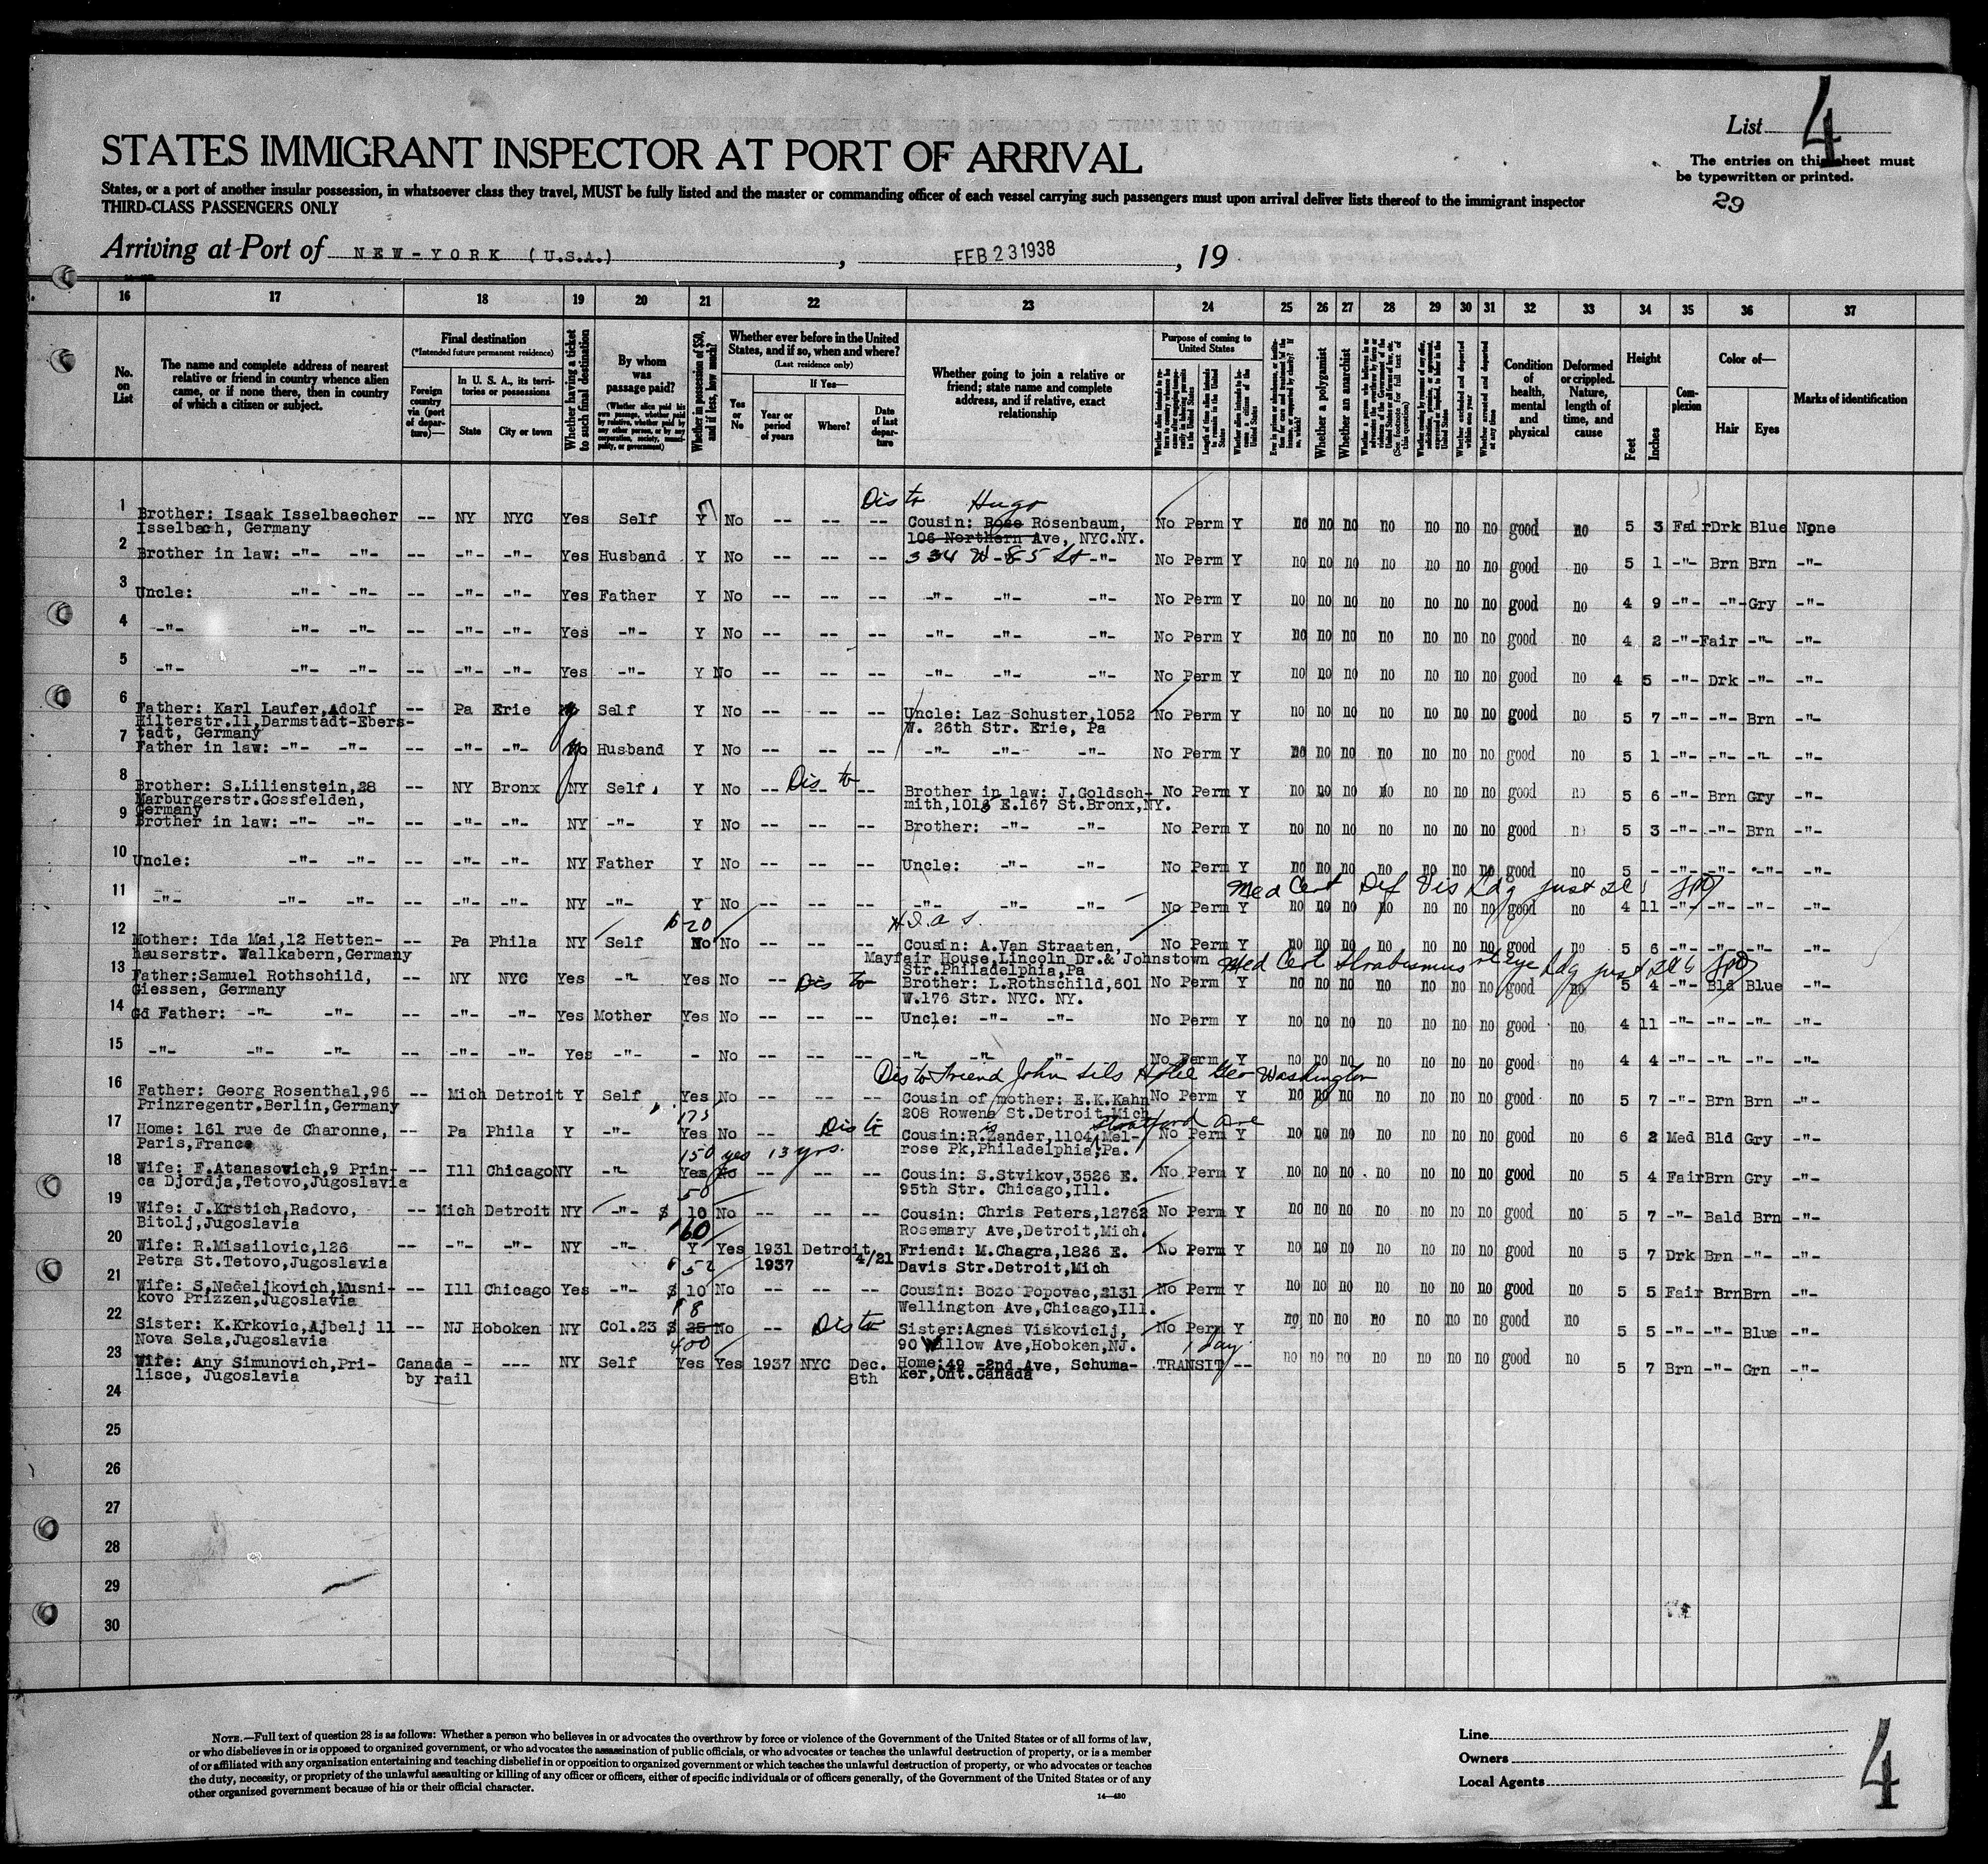 List 4
STATES IMMIGRANT INSPECTOR AT PORT OF ARRIVAL
The entries on this sheet must
be typewritten or printed.
States, or a port of another insular possession, in whatsoever class they travel, MUST be fully listed and the master or commanding officer of each vessel carrying such passengers must upon arrival deliver lists thereof to the immigrant inspector
THIRD-CLASS PASSENGERS ONLY
29
Arriving at Port of NEW-YORK (U.S.A.) , FEB 23 1938 , 19
16 17 18 19 20 21 22 23 24 25 26 27 28 29 30 31 32 33 34 35 36 37
No. on List
The name and complete address of nearest relative or friend in country whence alien came, or if none there, then in country of which a citizen or subject.
Final destination
(*Intended future permanent residence)
Foreign country via (port of departure)—
In U. S. A., its territories or possessions
State
City or town
Whether having a ticket to such final destination
By whom was passage paid?
(Whether alien paid his own passage, whether paid by relative, whether paid by any other person, or by any corporation, society, municipality, or government)
Whether in possession of $50, and if less, how much?
Whether ever before in the United States, and if so, when and where?
(Last residence only)
Yes or No
If Yes—
Year or period of years
Where?
Date of last departure
Whether going to join a relative or friend; state name and complete address, and if relative, exact relationship
Purpose of coming to United States
Length of time alien intends to remain in the United States
Whether alien intends to become a citizen of the United States
Whether a polygamist
Whether an anarchist
(See footnote for full text of this question)
Whether excluded and deported within one year
Whether arrested and deported at any time
Condition of health, mental and physical
Deformed or crippled. Nature, length of time, and cause
Height
Feet
Inches
Complexion
Color of—
Hair
Eyes
Marks of identification
Dis to Hugo
1 Brother: Isaak Isselbaecher -- NY NYC Yes Self Y No -- -- -- Cousin: Rose Rosenbaum, No Perm Y no no no no no no no good no 5 3 Fair Drk Blue None
Isselbach, Germany 106 Northern Ave, NYC.NY.
2 Brother in law: -"- -"- -- -"- -"- Yes Husband Y No -- -- -- 334 W-85 St -"- No Perm Y no no no no no no no good no 5 1 -"- Brn Brn -"-
3 Uncle: -"- -"- -- -"- -"- Yes Father Y No -- -- -- -"- -"- -"- No Perm Y no no no no no no no good no 4 9 -"- -"- Gry -"-
4 -"- -"- -"- -- -"- -"- Yes -"- Y No -- -- -- -"- -"- -"- No Perm Y no no no no no no no good no 4 2 -"- Fair -"- -"-
5 -"- -"- -"- -- -"- -"- Yes -"- Y No -- -- -- -"- -"- -"- No Perm Y no no no no no no no good no 4 5 -"- Drk -"- -"-
6 Father: Karl Laufer,Adolf -- Pa Erie Self Y No -- -- -- Uncle: Laz Schuster,1052 No Perm Y no no no no no no no good no 5 7 -"- -"- Brn -"-
Hilterstr.11,Darmstadt-Ebers- W. 26th Str. Erie, Pa
tadt, Germany
7 Father in law: -"- -"- -- -"- -"- No Husband Y No -- -- -- -"- -"- -"- No Perm Y no no no no no no no good no 5 1 -"- -"- -"- -"-
Dis to
8 Brother: S.Lilienstein,28 -- NY Bronx NY Self Y No -- -- -- Brother in law: J.Goldsch- No Perm Y no no no no no no no good no 5 6 -"- Brn Gry -"-
Marburgerstr.Gossfelden, mith,1016 E.167 St.Bronx,NY.
Germany
9 Brother in law: -"- -"- -- -"- -"- NY -"- Y No -- -- -- Brother: -"- -"- No Perm Y no no no no no no no good no 5 3 -"- -"- Brn -"-
10 Uncle: -"- -"- -- -"- -"- NY Father Y No -- -- -- Uncle: -"- -"- No Perm Y no no no no no no no good no 5 - -"- -"- -"- -"-
Med Cert Def Vis Ldg just
11 -"- -"- -"- -- -"- -"- NY -"- Y No -- -- -- -"- -"- -"- No Perm Y no no no no no no no good no 4 11 -"- -"- -"- -"-
$20 H.I.A.S.
12 Mother: Ida Mai,12 Hetten- -- Pa Phila NY Self No No -- -- -- Cousin: A.Van Straaten, No Perm Y no no no no no no no good no 5 6 -"- -"- -"- -"-
hauserstr. Wallkabern,Germany Mayfair House,Lincoln Dr.& Johnstown
Str.Philadelphia,Pa
Med Cert Strabismus rt eye Ldg just
13 Father:Samuel Rothschild, -- NY NYC Yes -"- Yes No -- Dis to Brother: L.Rothschild,601 No Perm Y no no no no no no no good no 5 4 -"- Bld Blue -"-
Giessen, Germany W.176 Str. NYC. NY.
14 Gd Father: -"- -"- -- -"- -"- Yes Mother Yes No -- -- -- Uncle: -"- -"- No Perm Y no no no no no no no good no 4 11 -"- -"- -"- -"-
15 -"- -"- -"- -- -"- -"- Yes -"- - No -- -- -- -"- -"- -"- No Perm Y no no no no no no no good no 4 4 -"- -"- -"- -"-
Dis to Friend John Sils Hotel Geo Washington
16 Father: Georg Rosenthal,96 -- Mich Detroit Y Self Yes No -- -- -- Cousin of mother: E.K.Kahn No Perm Y no no no no no no no good no 5 7 -"- Brn Brn -"-
Prinzregentr.Berlin,Germany 208 Rowena St.Detroit,Mich
175 Stratford Ave
17 Home: 161 rue de Charonne, -- Pa Phila Y -"- Yes No -- Dis to Cousin:R.Zander,1104 Mel- No Perm Y no no no no no no no good no 6 2 Med Bld Gry -"-
Paris,France rose Pk,Philadelphia,Pa.
150 yes 13 yrs.
18 Wife: F.Atanasovich,9 Prin- -- Ill Chicago NY -"- Yes No -- -- -- Cousin: S.Stvikov,3526 E. No Perm Y no no no no no no no good no 5 4 Fair Brn Gry -"-
ca Djordja,Tetovo,Jugoslavia 95th Str. Chicago,Ill.
50
19 Wife: J.Krstich,Radovo, -- Mich Detroit NY -"- $ 10 No -- -- -- Cousin: Chris Peters,12762 No Perm Y no no no no no no no good no 5 7 -"- Bald Brn -"-
Bitolj,Jugoslavia Rosemary Ave,Detroit,Mich.
$60
20 Wife: R.Misailovic,126 -- -"- -"- NY -"- Y Yes 1931 Detroit 4/21 Friend: M.Chagra,1826 E. No Perm Y no no no no no no no good no 5 7 Drk Brn -"- -"-
Petra St.Tetovo,Jugoslavia 1937 Davis Str.Detroit,Mich
$52
21 Wife: S.Nedeljkovich,Musni- -- Ill Chicago Yes -"- $ 10 No -- -- -- Cousin: Bozo Popovac,2131 No Perm Y no no no no no no no good no 5 5 Fair Brn Brn -"-
kovo Prizzen,Jugoslavia Wellington Ave,Chicago,Ill.
$8
22 Sister: K.Krkovic,Ajbelj 11 -- NJ Hoboken NY Col.23 $ 25 No -- Dis to Sister:Agnes Viskoviclj, No Perm Y no no no no no no no good no 5 5 -"- -"- Blue -"-
Nova Sela,Jugoslavia 90 Willow Ave,Hoboken,NJ.
400 1 day
23 Wife: Any Simunovich,Pri- Canada - --- NY Self Yes Yes 1937 NYC Dec. Home:49 -2nd Ave, Schuma- TRANSIT -- no no no no no no no good no 5 7 Brn -"- Grn -"-
lisce, Jugoslavia by rail 8th ker,Ont.Canada
24
25
26
27
28
29
30
NOTE.—Full text of question 28 is as follows: Whether a person who believes in or advocates the overthrow by force or violence of the Government of the United States or of all forms of law,
or who disbelieves in or is opposed to organized government, or who advocates the assassination of public officials, or who advocates or teaches the unlawful destruction of property, or is a member
of or affiliated with any organization entertaining and teaching disbelief in or opposition to organized government or which teaches the unlawful destruction of property, or who advocates or teaches
the duty, necessity, or propriety of the unlawful assaulting or killing of any officer or officers, either of specific individuals or of officers generally, of the Government of the United States or of any
other organized government because of his or their official character.
14—430
Line
Owners
Local Agents
4